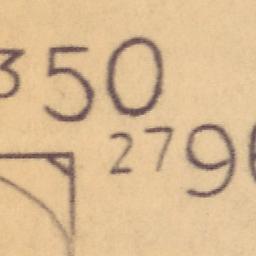 ³50
²⁷9